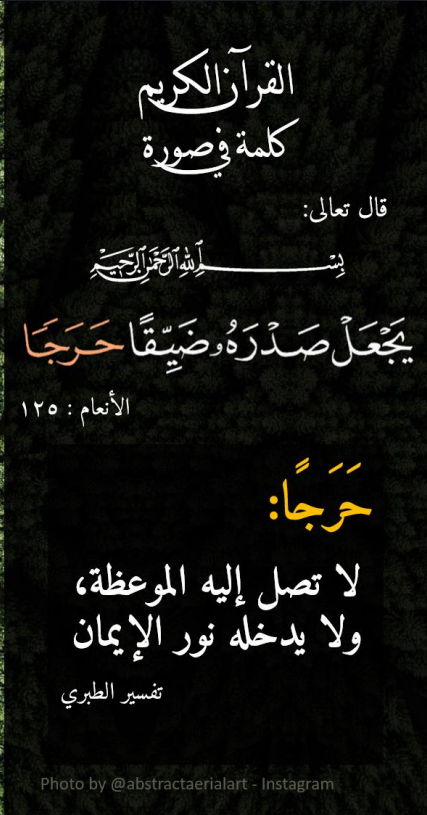 القرآن الكريم
كلمة في صورة
قال تعالى:
بِسْمِ ٱللَّهِ ٱلرَّحْمَٰنِ ٱلرَّحِيمِ
يَجْعَلْ صَدْرَهُۥ ضَيِّقًا حَرَجًا
الأنعام : ١٢٥
حَرَجًا:
لا تصل إليه الموعظة،
ولا يدخله نور الإيمان
تفسير الطبري
Photo by @abstractaerialart - Instagram